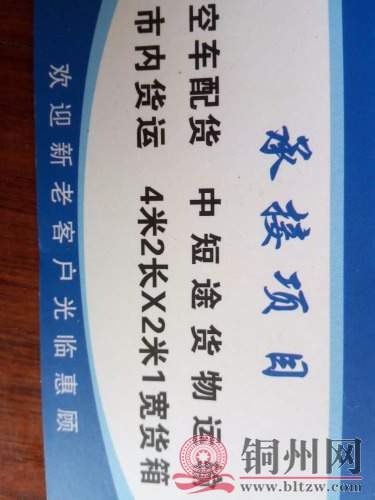 承接项目
空车配货 中短途货物运输
市内货运 4米2长X2米1宽货箱
欢迎新老客户光临惠顾
铜州网
www.bltzw.com